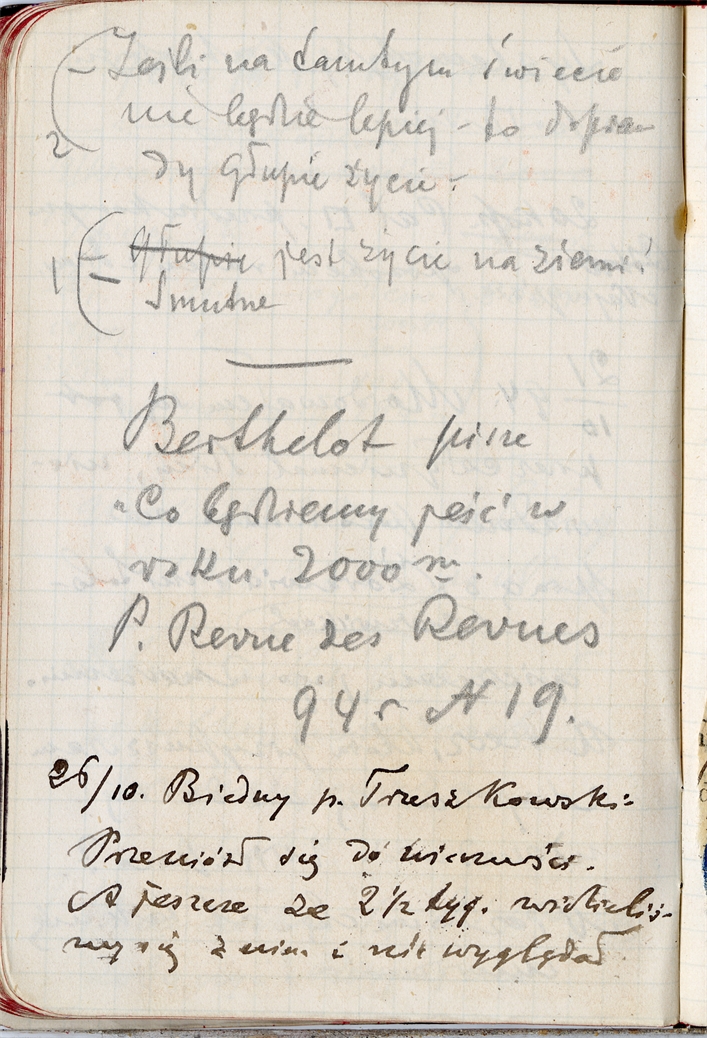 2 (– Jeśli na tamtym świecie
nie będzie lepiej – to dopraw
dy głupie życie –
1 (– Głupie jest życie na ziemi
– Smutne
Berthelot pisze
"Co będziemy jeść w
roku 2000 m.
P. Revue des Revues
94 r N 19.
26/10. Biedny p. Trzeszkowski:
Przeniósł się do wieczności.
A jeszcze ze 2 1/2 tyg. widzieliś-
my się z nim i nie wyglądał